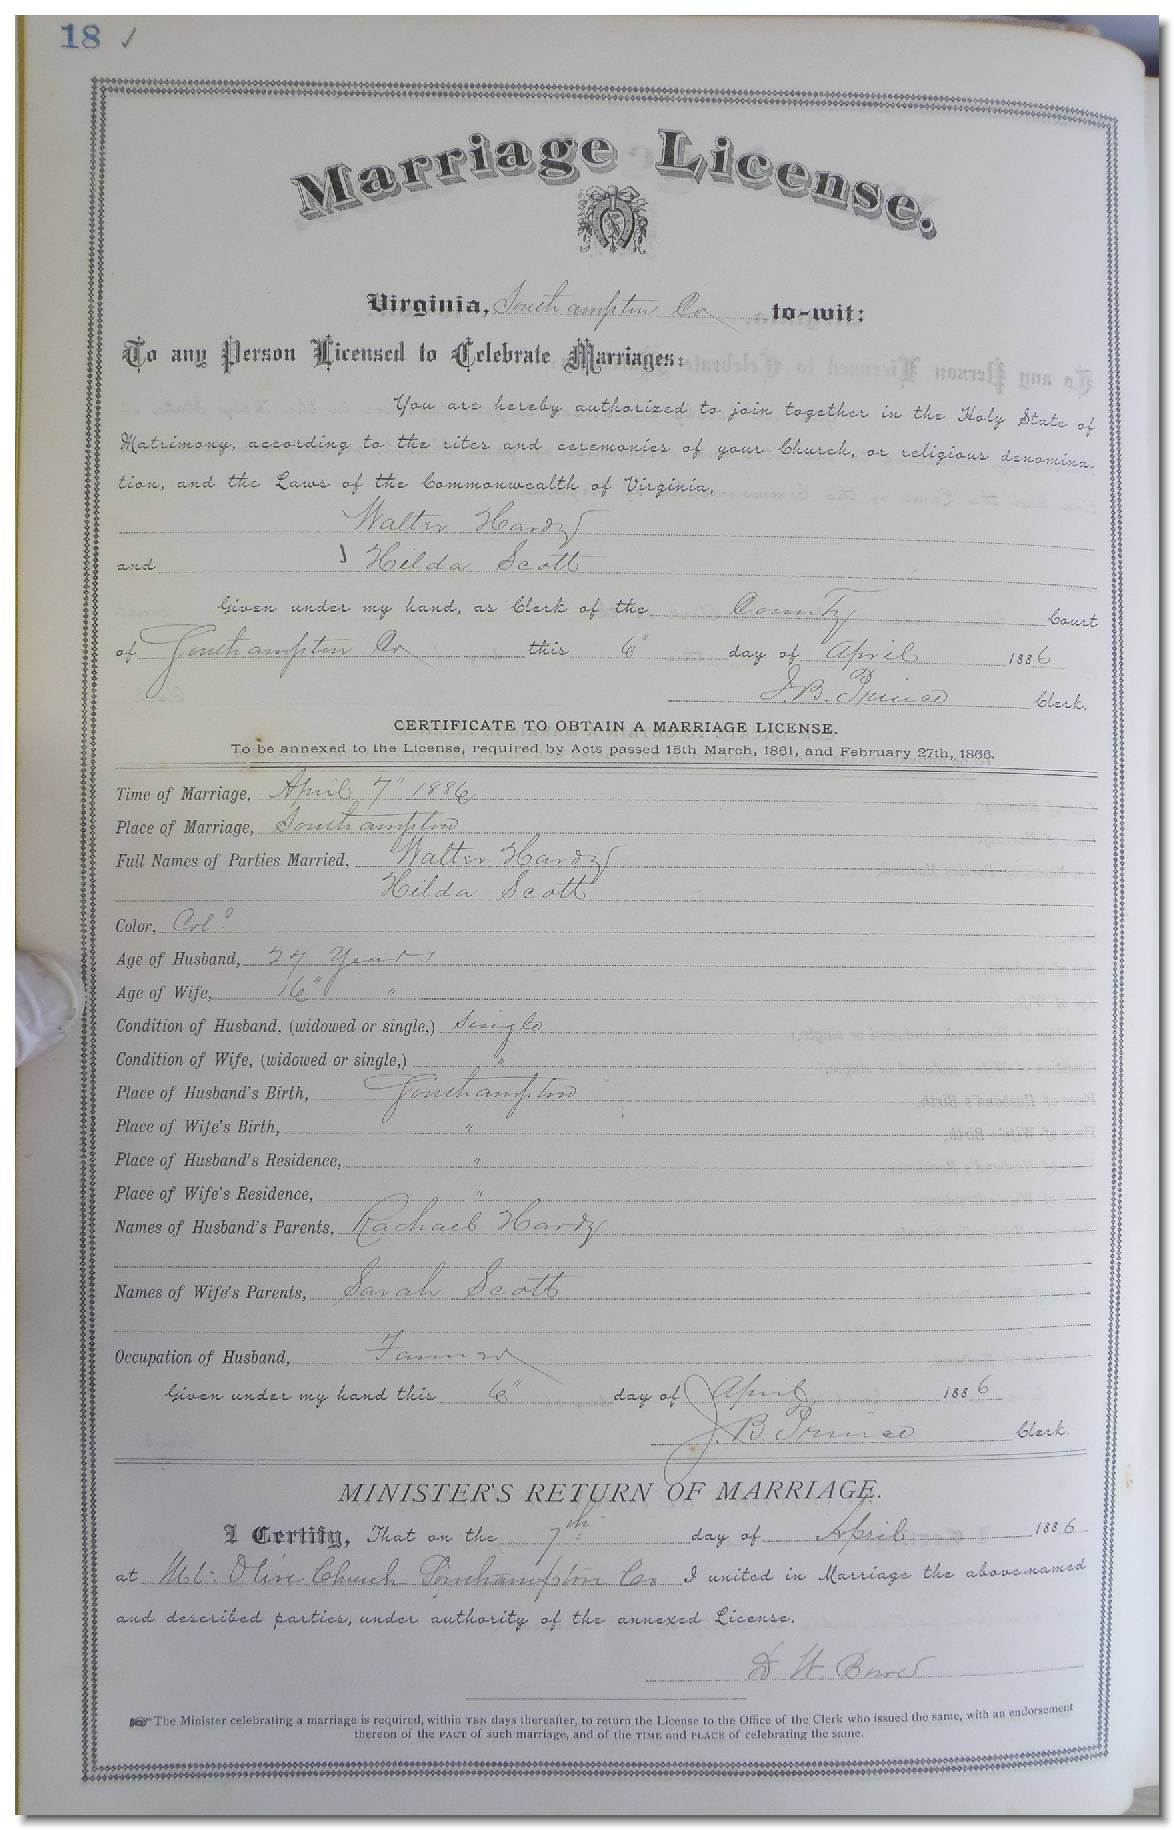 18 ✓
Marriage License.
Virginia, Southampton Co to-wit:
To any Person Licensed to Celebrate Marriages:
You are hereby authorized to join together in the Holy State of
Matrimony, according to the rites and ceremonies of your Church, or religious denomina-
tion, and the Laws of the Commonwealth of Virginia,
Walter Hardy
and Hilda Scott
Given under my hand, as Clerk of the County Court
of Southampton Co this 6" day of April 1886
J. B. Prince Clerk.
CERTIFICATE TO OBTAIN A MARRIAGE LICENSE.
To be annexed to the License, required by Acts passed 15th March, 1861, and February 27th, 1866.
Time of Marriage, April 7" 1886
Place of Marriage, Southampton
Full Names of Parties Married, Walter Hardy
Hilda Scott
Color, Cold
Age of Husband, Years
Age of Wife, 16" "
Condition of Husband, (widowed or single,) Single
Condition of Wife, (widowed or single,) "
Place of Husband's Birth, Southampton
Place of Wife's Birth, "
Place of Husband's Residence, "
Place of Wife's Residence, "
Names of Husband's Parents, Rachael Hardy
Names of Wife's Parents, Sarah Scott
Occupation of Husband, Farmer
Given under my hand this 6" day of April 1886
J. B. Prince Clerk.
MINISTER'S RETURN OF MARRIAGE.
I Certify, That on the 7th day of April 1886
at Mt. Olive Church Southampton Co I united in Marriage the above-named
and described parties, under authority of the annexed License.
W.
The Minister celebrating a marriage is required, within TEN days thereafter, to return the License to the Office of the Clerk who issued the same, with an endorsement
thereon of the FACT of such marriage, and of the TIME and PLACE of celebrating the same.